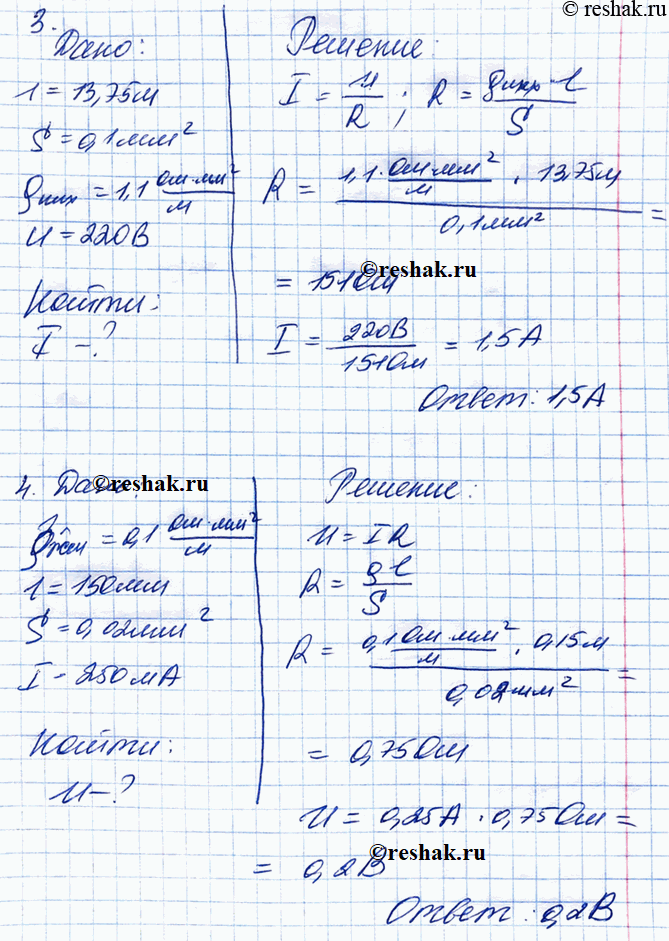 © reshak.ru
3.
Дано:
l = 13,75м
S = 0,1мм²
ρ_них = 1,1 Ом·мм²/м
U = 220В
Найти:
I - ?
Решение:
I = U/R ; R = ρ_них·l/S
R = 1,1·Ом·мм²/м · 13,75м / 0,1мм² =
©reshak.ru
= 151Ом
I = 220В/151Ом = 1,5А
Ответ: 1,5А
4. Дано:
©reshak.ru
ρ_жел = 0,1 Ом·мм²/м
l = 150мм
S = 0,02мм²
I - 250мА
Найти:
U - ?
Решение:
U = IR
R = ρl/S
R = 0,1Ом·мм²/м · 0,15м / 0,02мм² =
= 0,75Ом
U = 0,25А · 0,75Ом =
= 0,2В
©reshak.ru
Ответ: 0,2В